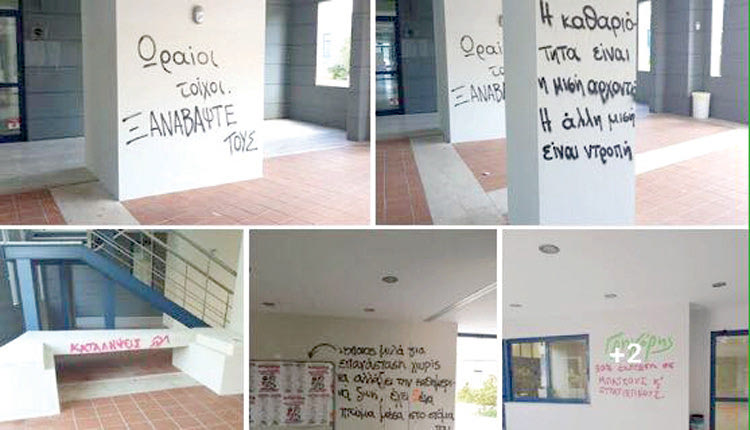 Ωραίοι
τοίχοι.
ΞΑΝΑΒΑΨΤΕ
ΤΟΥΣ
Ωραίοι
το
ΞΑΝΑΒ
Η καθαριό-
τητα είναι
η μισή αρχοντι
Η άλλη μισή
είναι ντροπή
ΚΑΤΑΛΗΨΕΙΣ
όποιος μιλά για
επανάσταση χωρίς
να αλλάζει την καθημερι-
νή ζωή, έχει ένα
πτώμα μέσα στο στόμα
του
Γρηγόρης
+2
ΜΠΑΤΣΟΥΣ Κ'